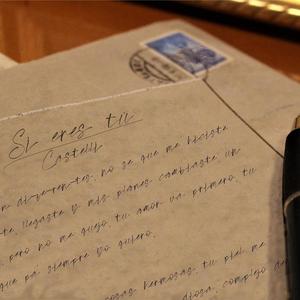 Si eres tú
Castelli
no se que me hiciste
llegaste y mis planes cambiaste, un
pero no me quejo, tu amor va primero, tu
que pa siempre yo quiero.
cosas hermosas, tu piel me
complejo de